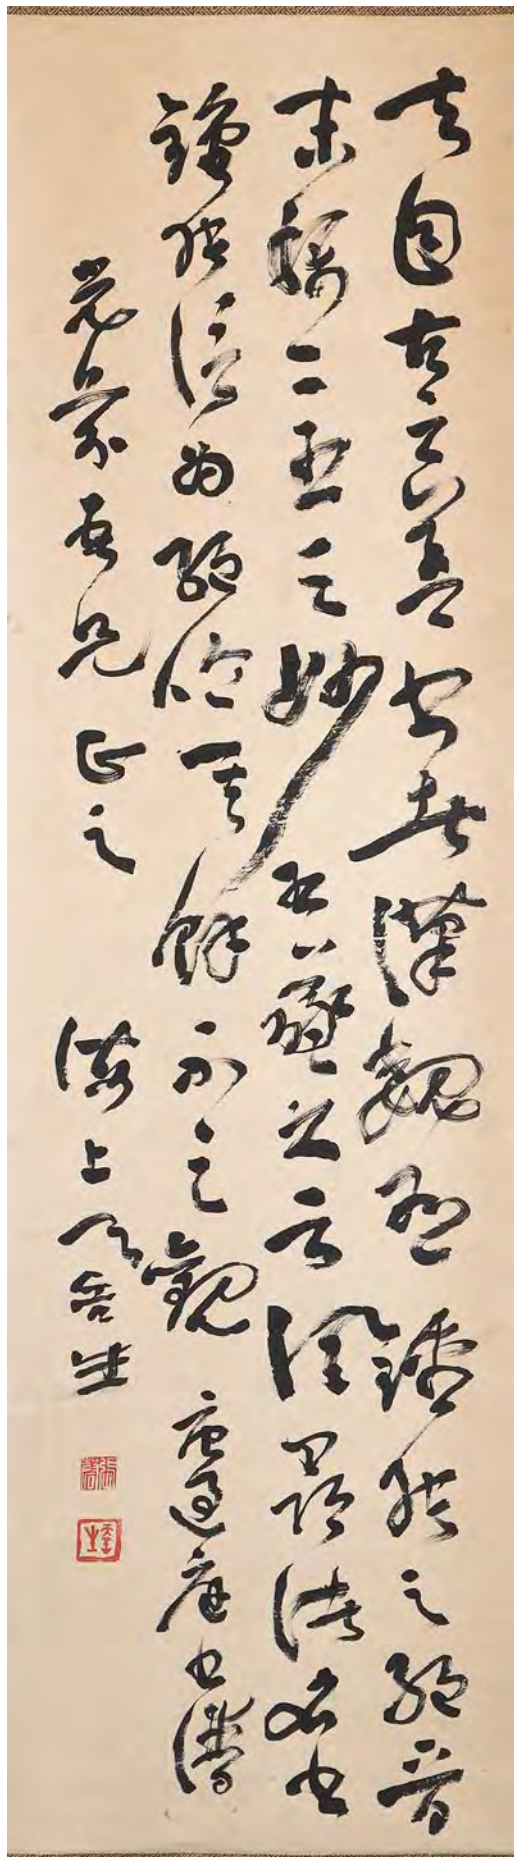 夫自古之善書者漢魏有鍾張之絕晉
末稱二王之妙王羲之云頃尋諸名書
鍾張信為絕倫其餘不足觀 過庭書譜
吾兄正之 海上